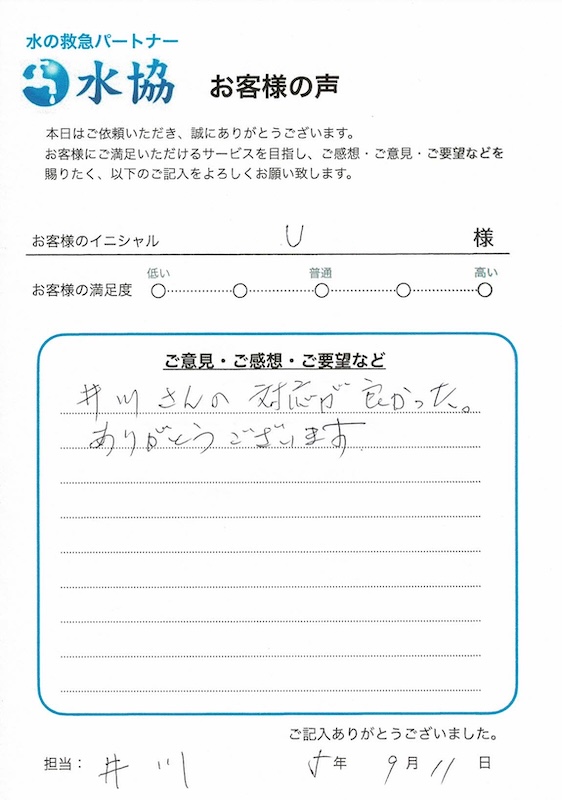 水の救急パートナー
水協 お客様の声
本日はご依頼いただき、誠にありがとうございます。
お客様にご満足いただけるサービスを目指し、ご感想・ご意見・ご要望などを
賜りたく、以下のご記入をよろしくお願い致します。
お客様のイニシャル U 様
低い 普通 高い
お客様の満足度
ご意見・ご感想・ご要望など
井川さんの対応が良かった。
ありがとうございます
ご記入ありがとうございました。
担当： 井川 5年 9月 11日